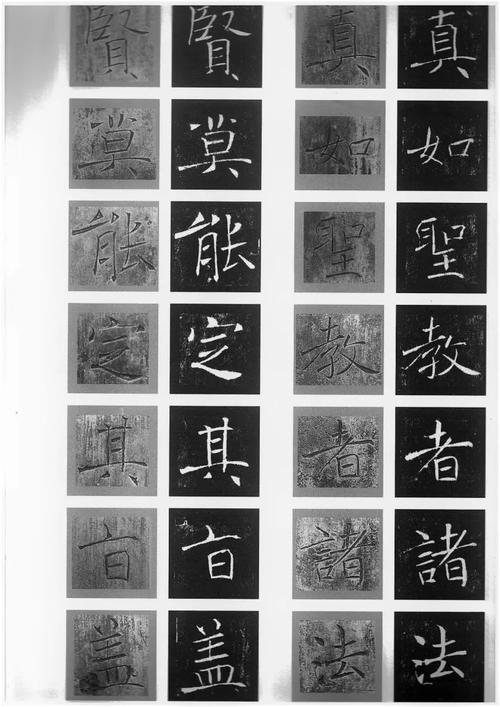 賢莫能定其旨盖
賢莫能定其旨盖
真如聖教者諸法
真如聖教者諸法